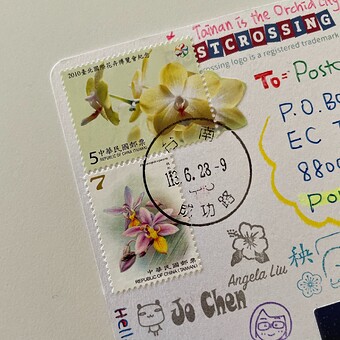 Tainan is the Orchid city
STCROSSING
crossing logo is a registered trademark
To: Postc
P.O.Bo
EC T
8800
Po
2010臺北國際花卉博覽會紀念
5 中華民國郵票
REPUBLIC OF CHINA (TAIWAN)
台南
113.6.28-9
成功路
7
中華民國郵票
REPUBLIC OF CHINA (TAIWAN)
秧
Angela Liu
Jo Chen
Hell